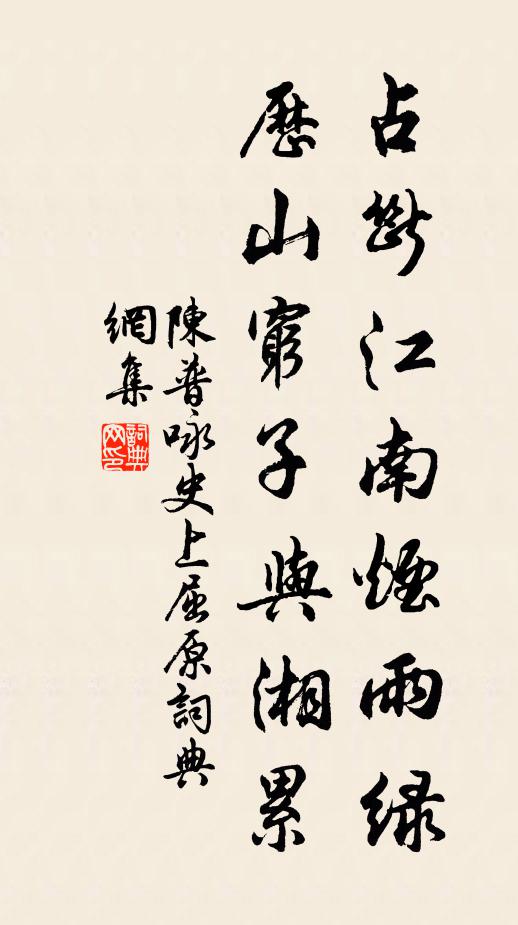 占斷江南煙雨綠
歷山窮子與湘累
陳普咏史上屈原詞典
網集
詞典
網印